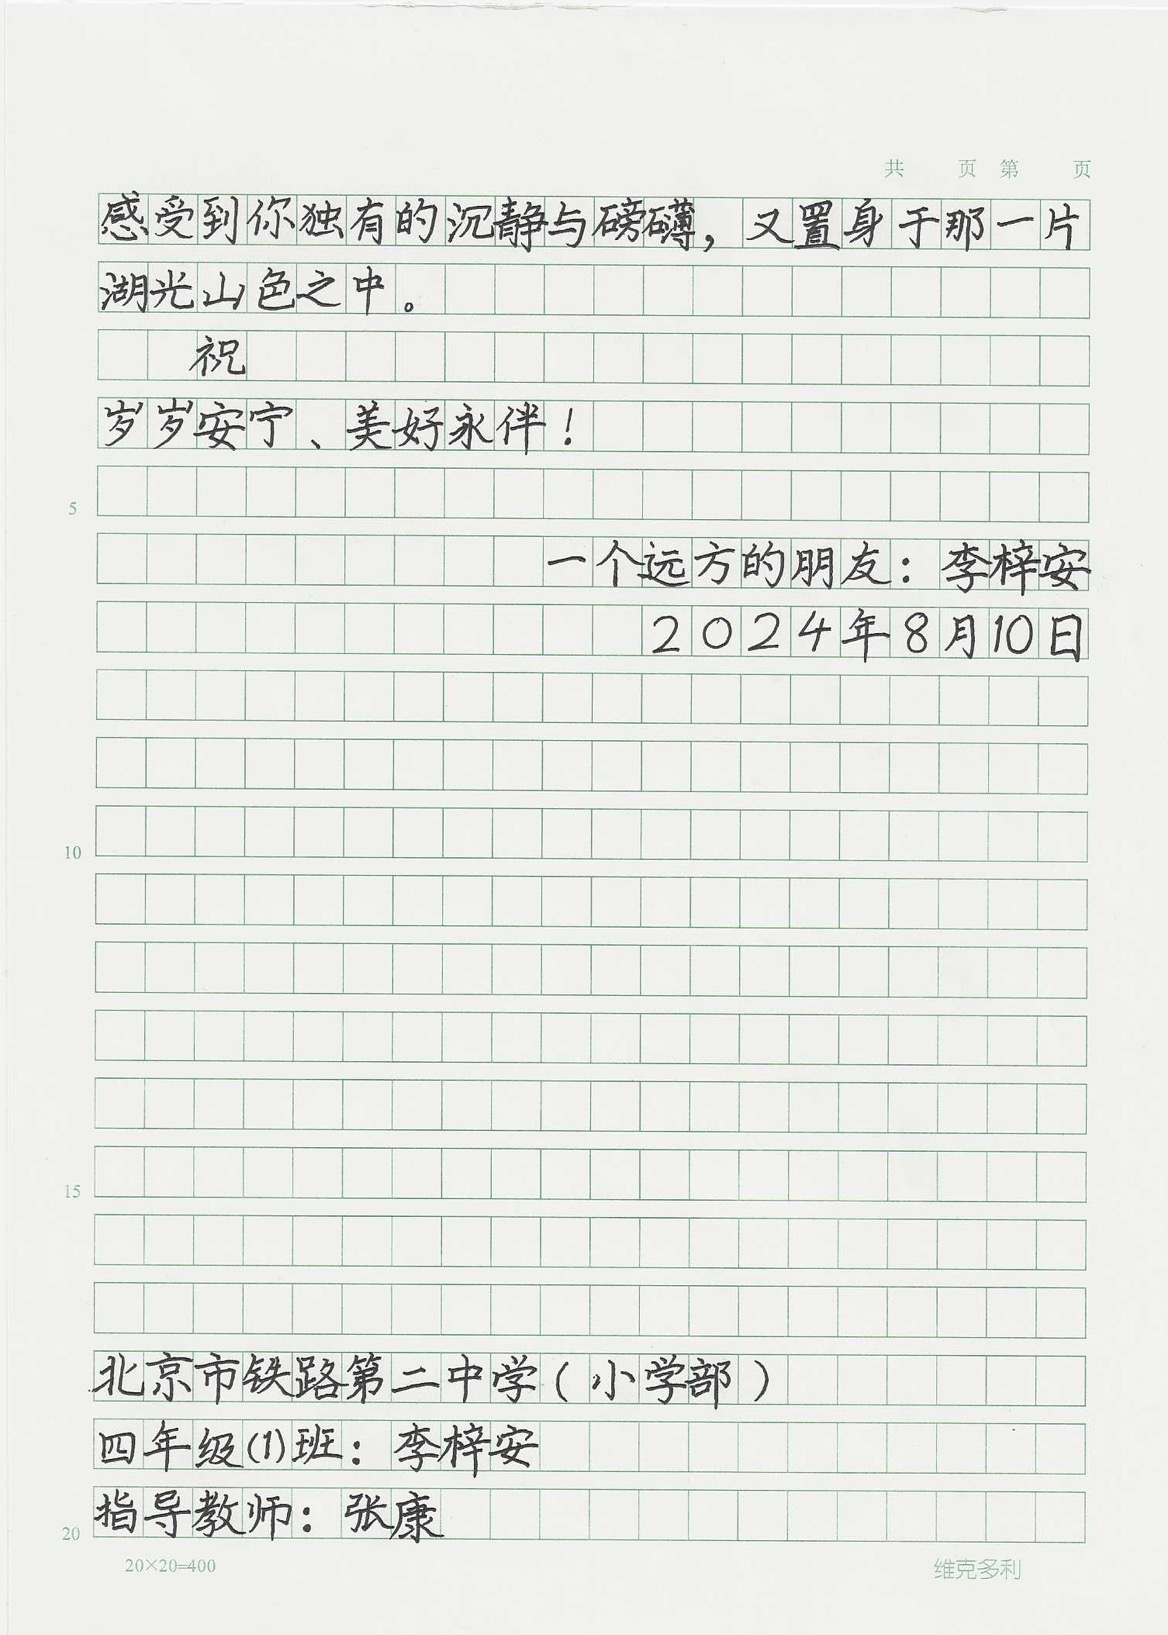 共 页 第 页
感受到你独有的沉静与磅礴，又置身于那一片
湖光山色之中。
祝
岁岁安宁、美好永伴！
5
一个远方的朋友：李梓安
2024年8月10日
10
15
北京市铁路第二中学（小学部）
四年级(1)班：李梓安
指导教师：张康
20
20×20=400 维克多利